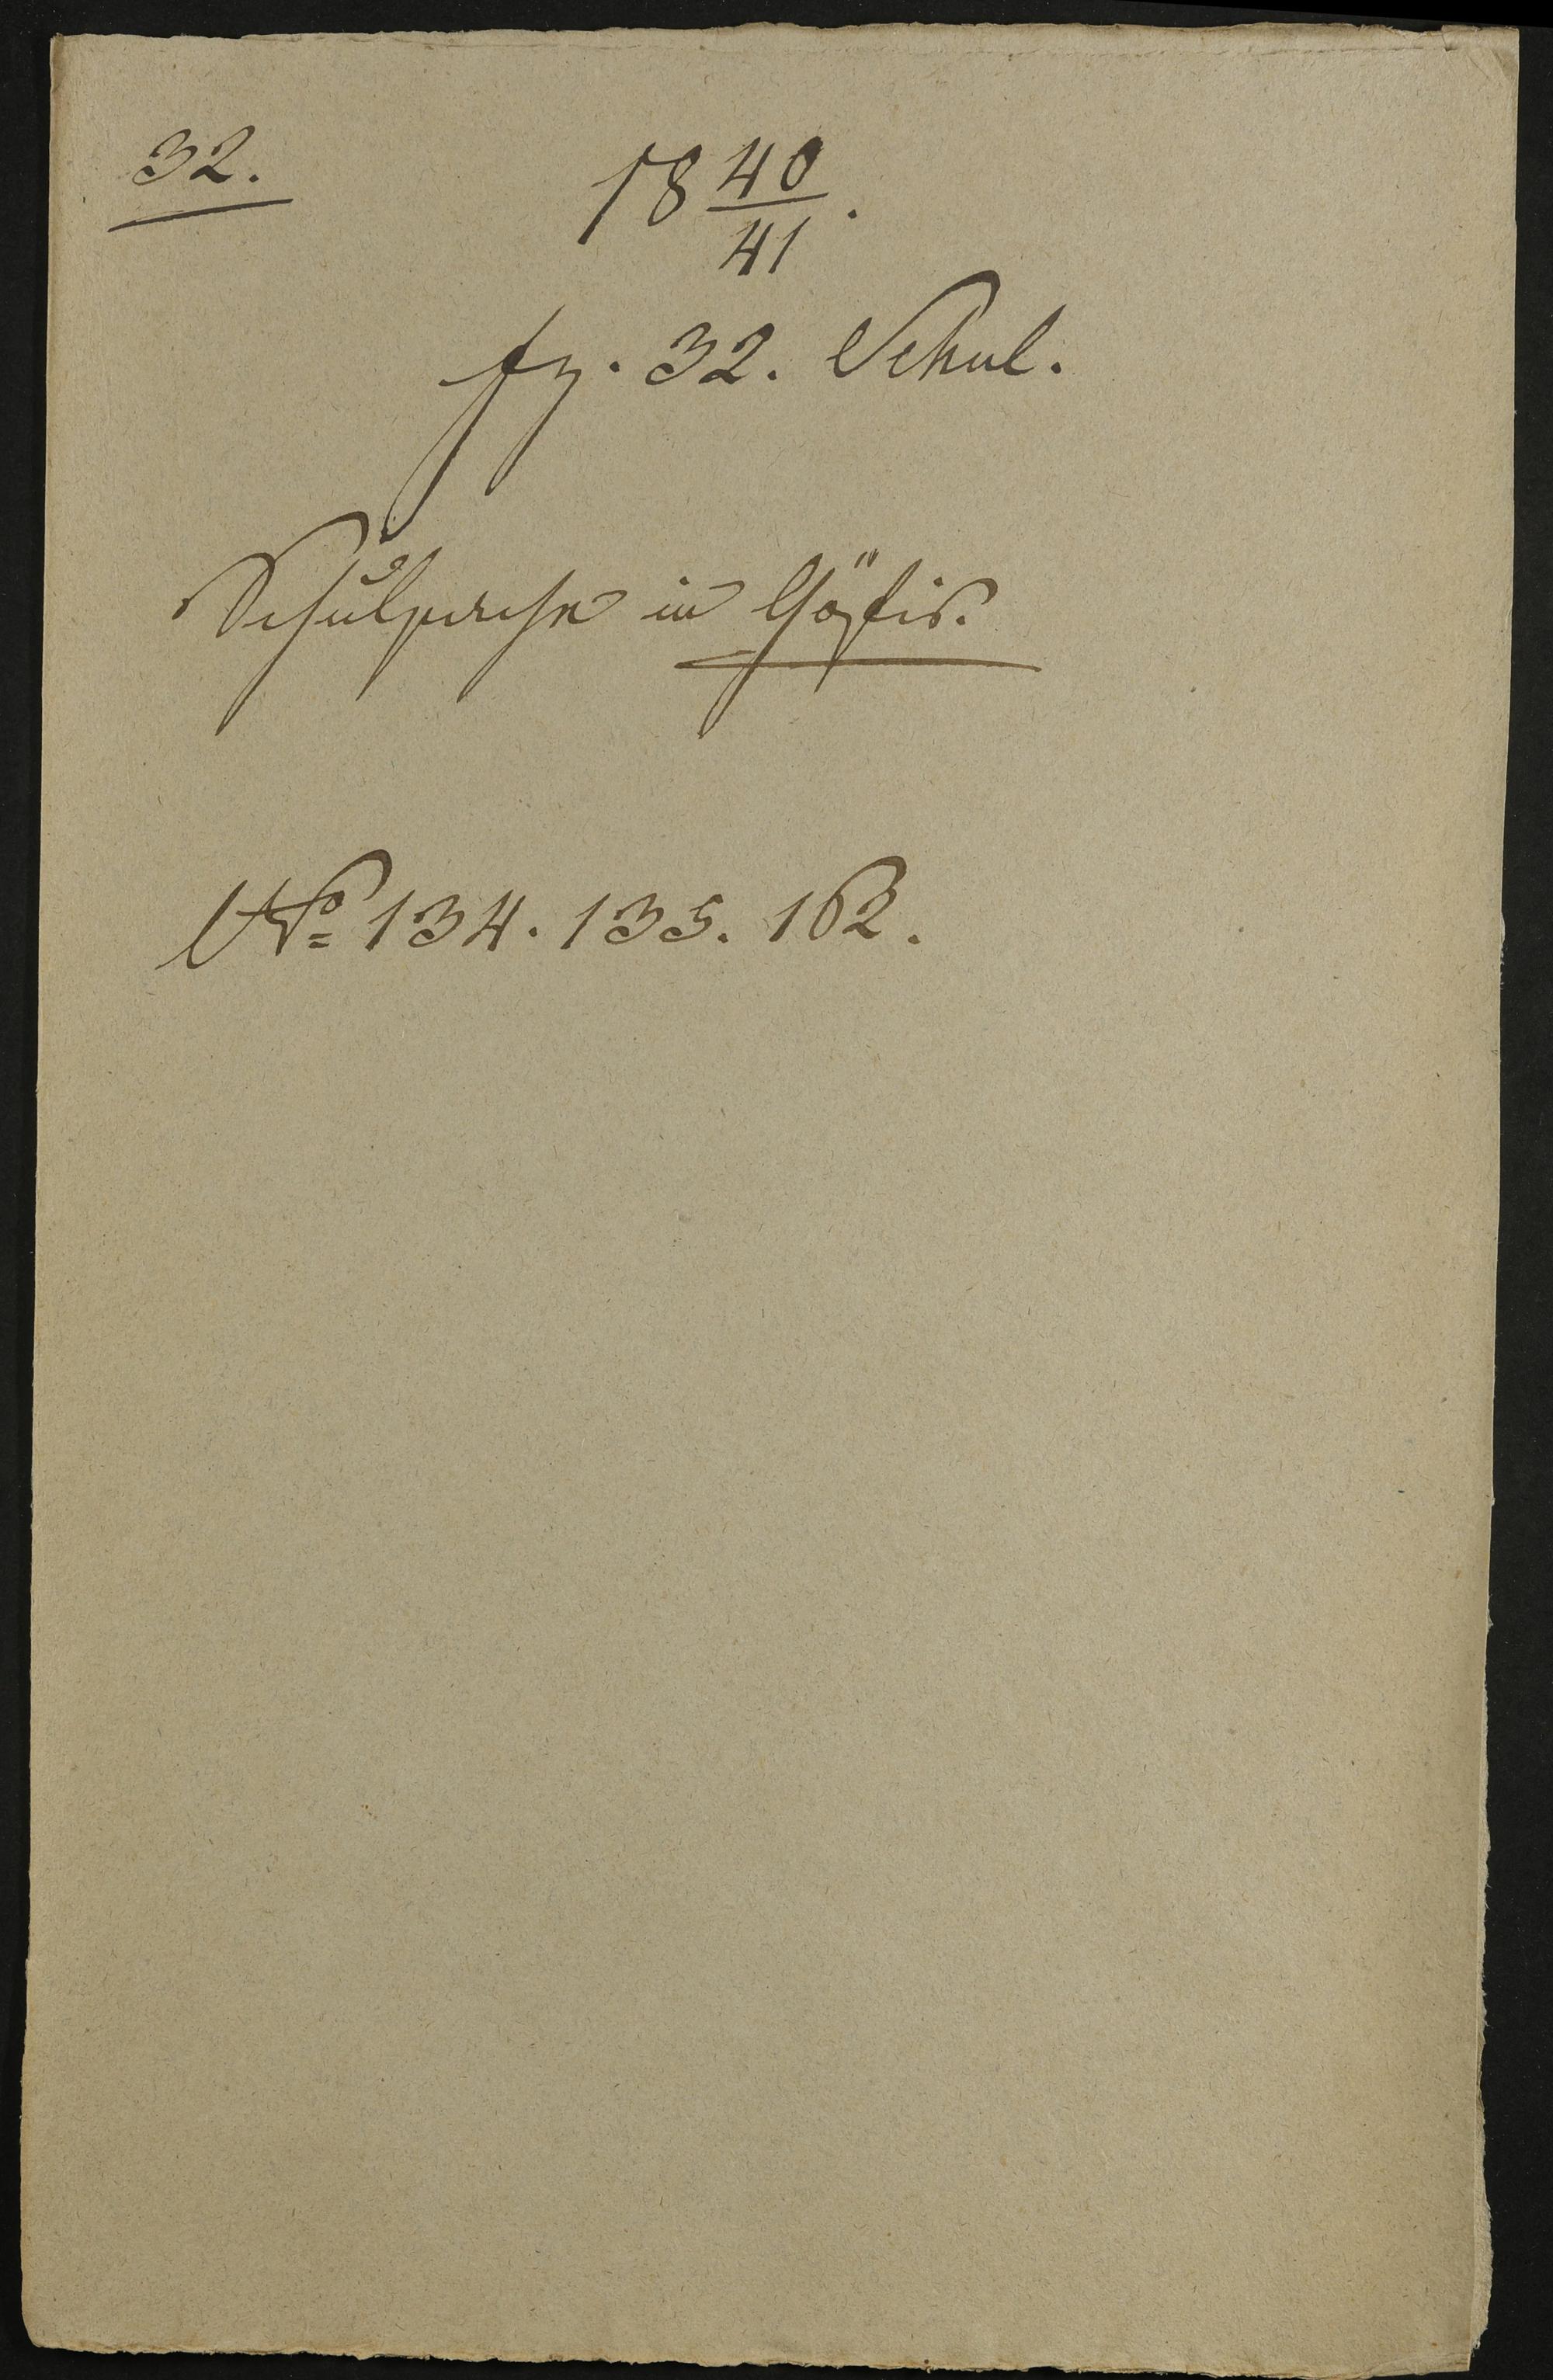 32.
18 40/41.
fz. 32. Schul.
Schulsache in Göfis.
No 134. 135. 162.